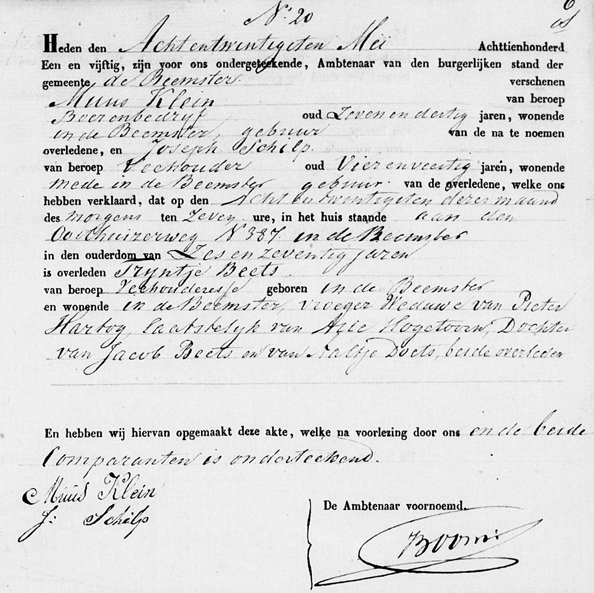 N° 20
Heden den Achtentwintigsten Mei Achttienhonderd
Een en vijftig, zijn voor ons ondergeteekende, Ambtenaar van den burgerlijken stand der
gemeente de Beemster verschenen
Muus Klein van beroep
Boerenbedrijf oud Zevenendertig jaren, wonende
in de Beemster, gebuur van de na te noemen
overledene, en Joseph Schilp.
van beroep Veehouder oud Vierenveertig jaren, wonende
mede in de Beemster gebuur van de overledene, welke ons
hebben verklaard, dat op den Achtentwintigsten dezer maand
des morgens ten Zeven ure, in het huis staande aan den
Oosthuizerweg N° 387 in de Beemster
in den ouderdom van Zes en zeventig jaren
is overleden Tryntje Beets.
van beroep Veehouderesse geboren in de Beemster
en wonende in de Beemster, vroeger Weduwe van Pieter
Hartog, laatstelijk van Arie Hogetoorn, Dochter
van Jacob Beets en van Aaltje Doets, beide overleden
En hebben wij hiervan opgemaakt deze akte, welke na voorlezing door ons en de beide
Comparanten is onderteekend.
Muus Klein
J: Schilp
De Ambtenaar voornoemd.